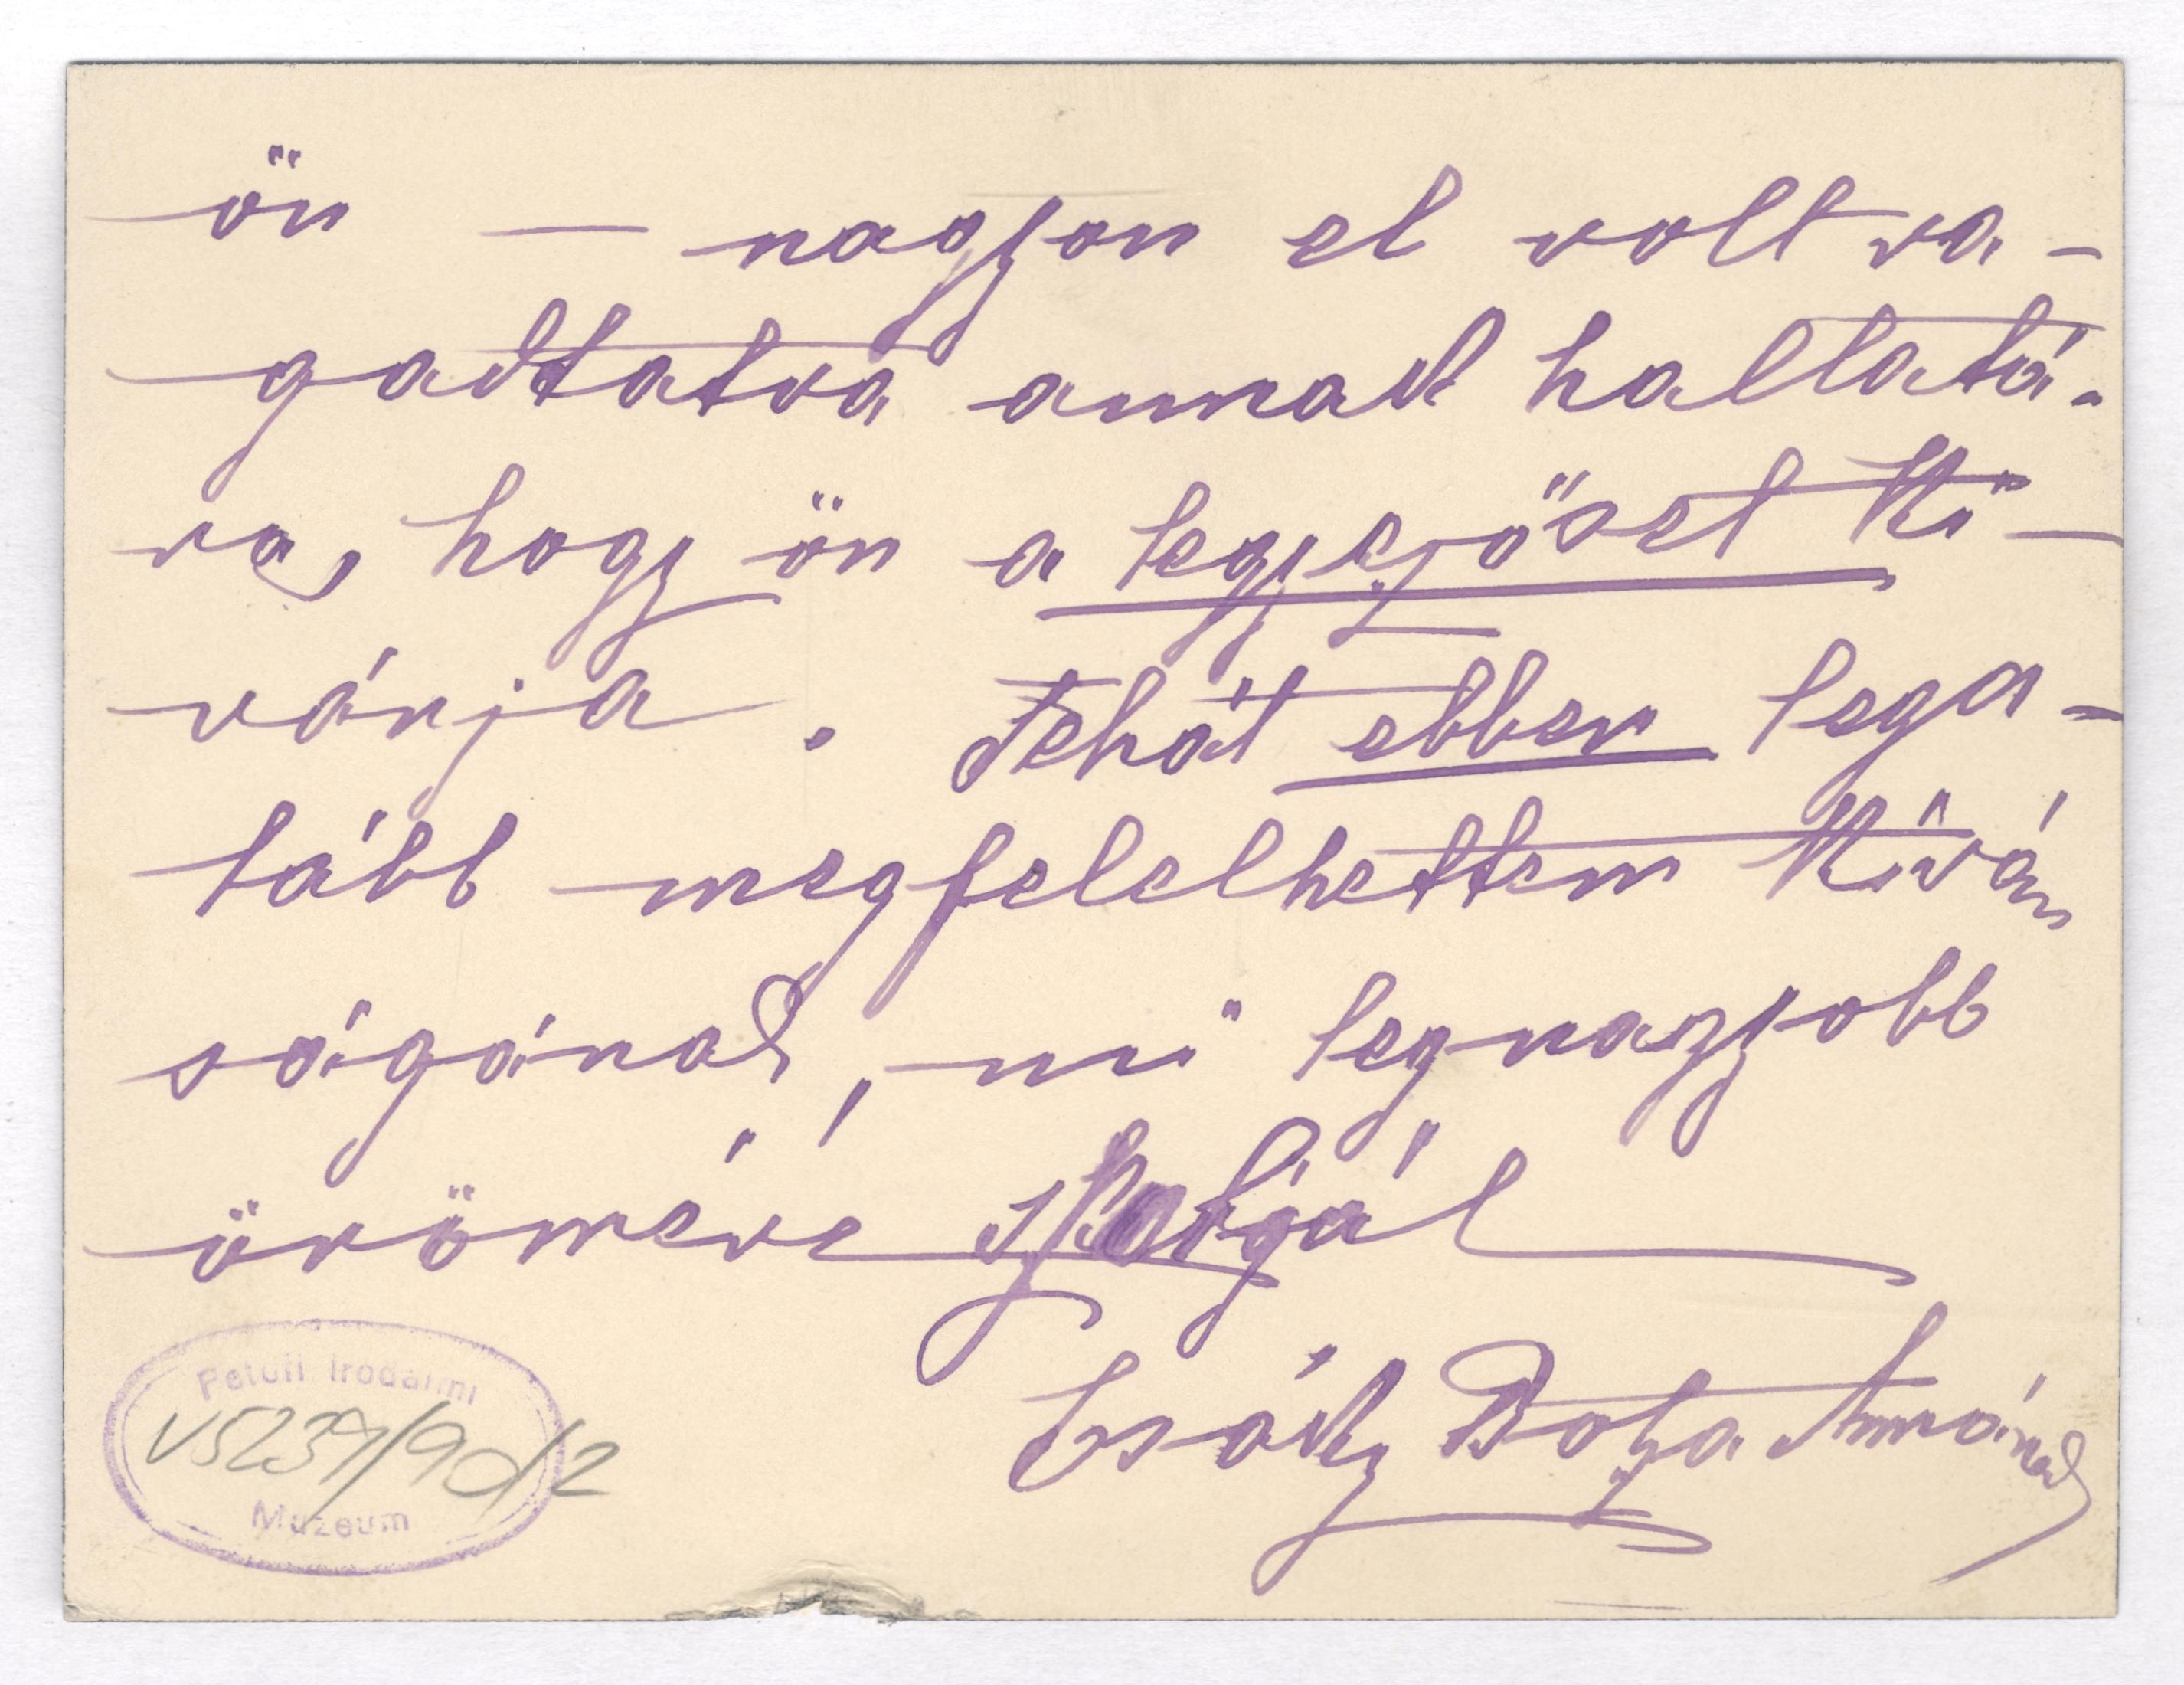 ön — nagyon el volt ra-
gadtatva annak hallatá-
ra, hogy ön a legelsőset kí-
vánja. Tehát ebben lega-
lább megfelelhettem kíván
ságának, mi legnagyobb
örömére szolgál
Csáky Bota Annának
Petőfi Irodalmi
V5239/90/2
Múzeum